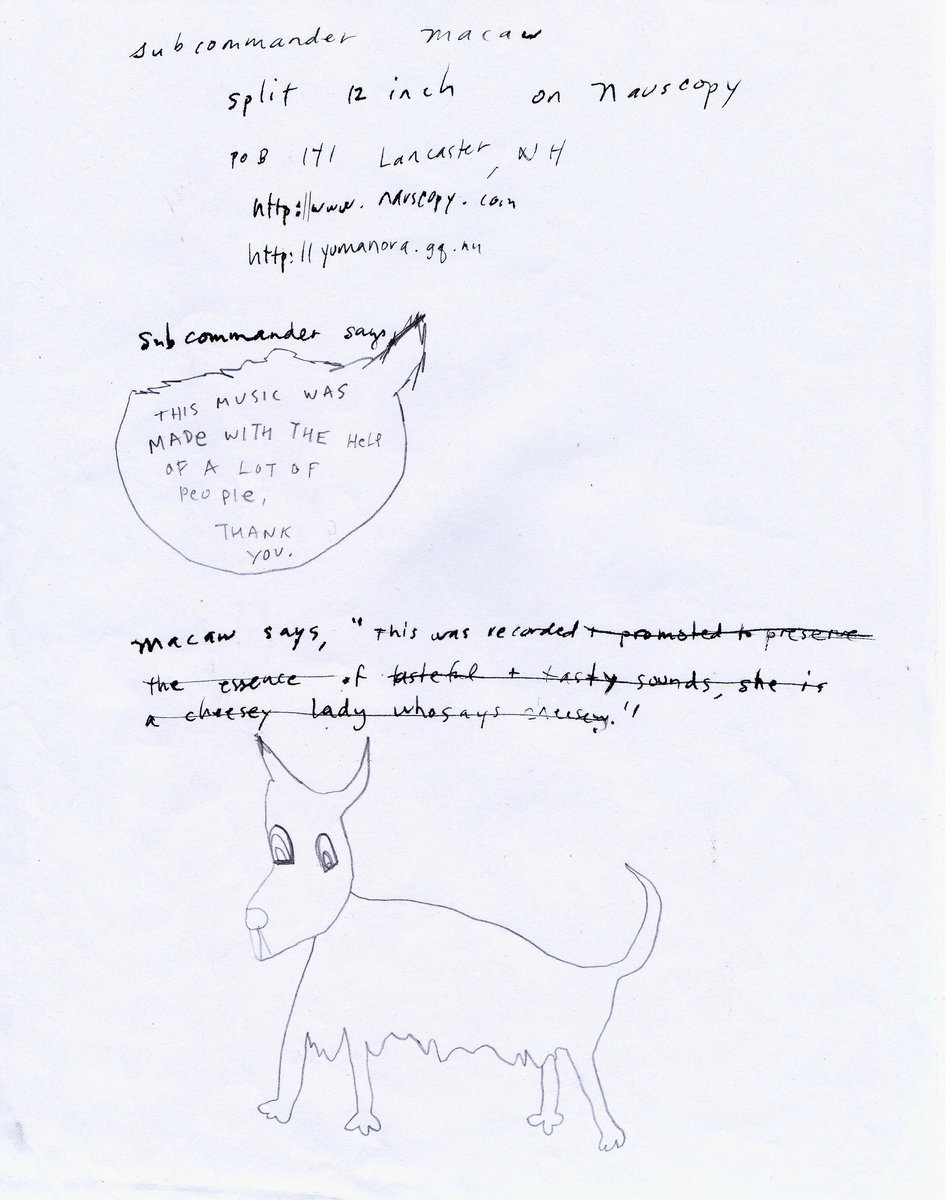 subcommander macaw
split 12 inch on Nauscopy
POB 141 Lancaster, NH
http://www.nauscopy.com
http://yumanora.gq.nu
Subcommander says,
THIS MUSIC WAS
MADe WITH THE HeLP
OF A LOT OF
PeoPle,
THANK
YOU.
macaw says, "this was recorded + promoted to preserve
the essence of tasteful + tasty sounds, she is
a cheesey lady who says cheesey."